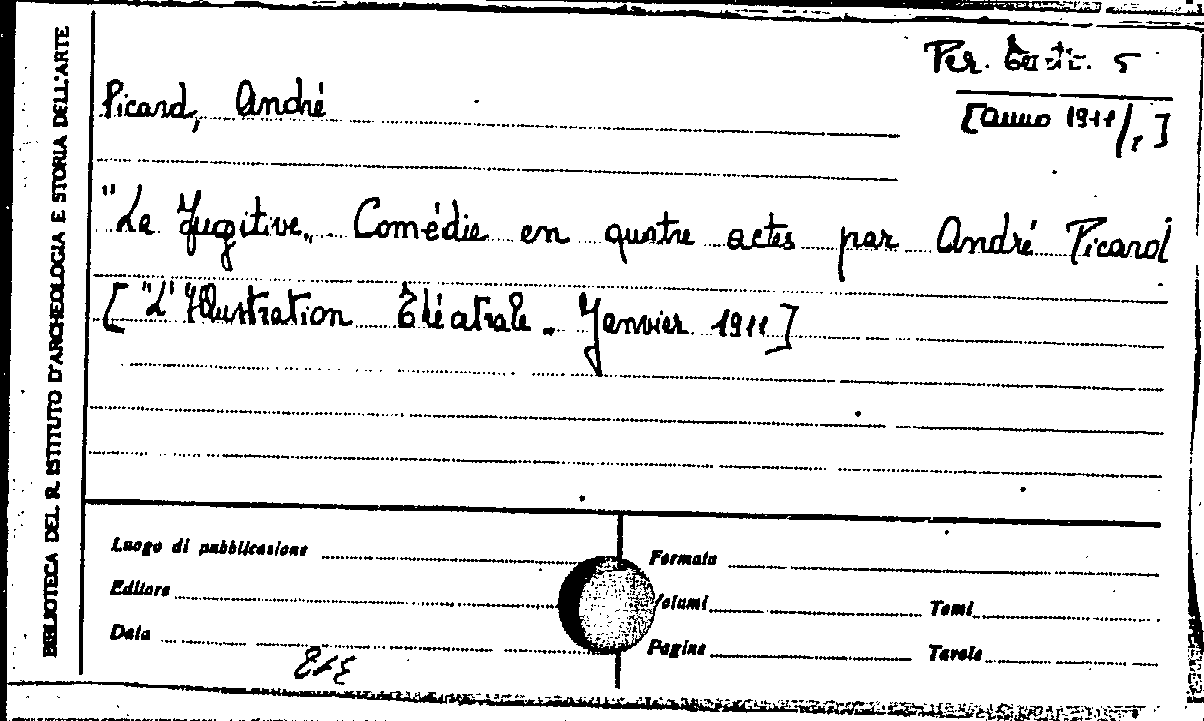 BIBLIOTECA DEL R. ISTITUTO D'ARCHEOLOGIA E STORIA DELL'ARTE
Per. 5
[Anno 1911/1]
Picard, André
"La Fugitive„ Comédie en quatre actes par André Picard
["L'Illustration Théâtrale - Janvier 1911]
Luogo di pubblicazione
Formato
Editore
Volumi
Tomi
Data
Pagine
Tavole